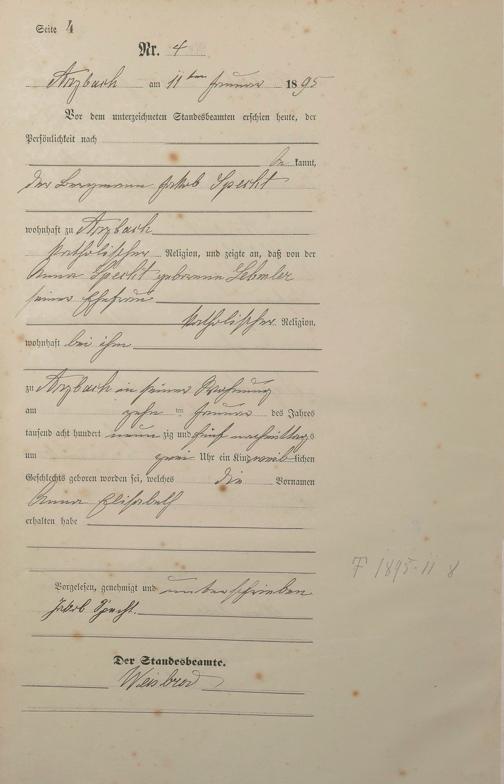 Seite 4
Nr. 4
Arzbach am 11ten Januar 1895
Vor dem unterzeichneten Standesbeamten erschien heute, der
Persönlichkeit nach
be kannt,
der Bergmann Jakob Specht
wohnhaft zu Arzbach
katholischer Religion, und zeigte an, daß von der
Anna Specht geborenen
seiner Ehefrau
katholischer Religion,
wohnhaft bei ihm
zu Arzbach in seiner Wohnung
am zehn ten Januar des Jahres
tausend acht hundert neun zig und fünf nachmittags
um zwei Uhr ein Kind weiblichen
Geschlechts geboren worden sei, welches die Vornamen
Anna Elisabeth
erhalten habe
Vorgelesen, genehmigt und unterschrieben
Jakob Specht.
Der Standesbeamte.
Weisbrod
F 1895-11 8